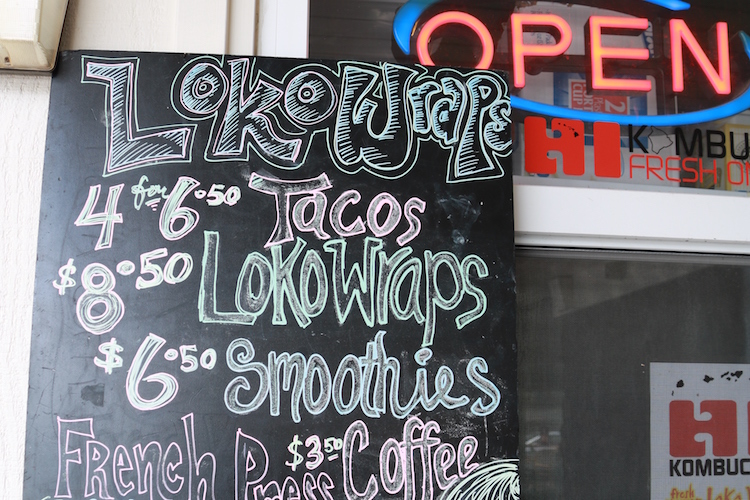 LOKO Wraps
4 for 6.50 Tacos
$8.50 LOKO Wraps
$6.50 Smoothies
French Press $3.50 Coffee
OPEN
HI KOMBUC
FRESH ON
HI
KOMBUC
fresh